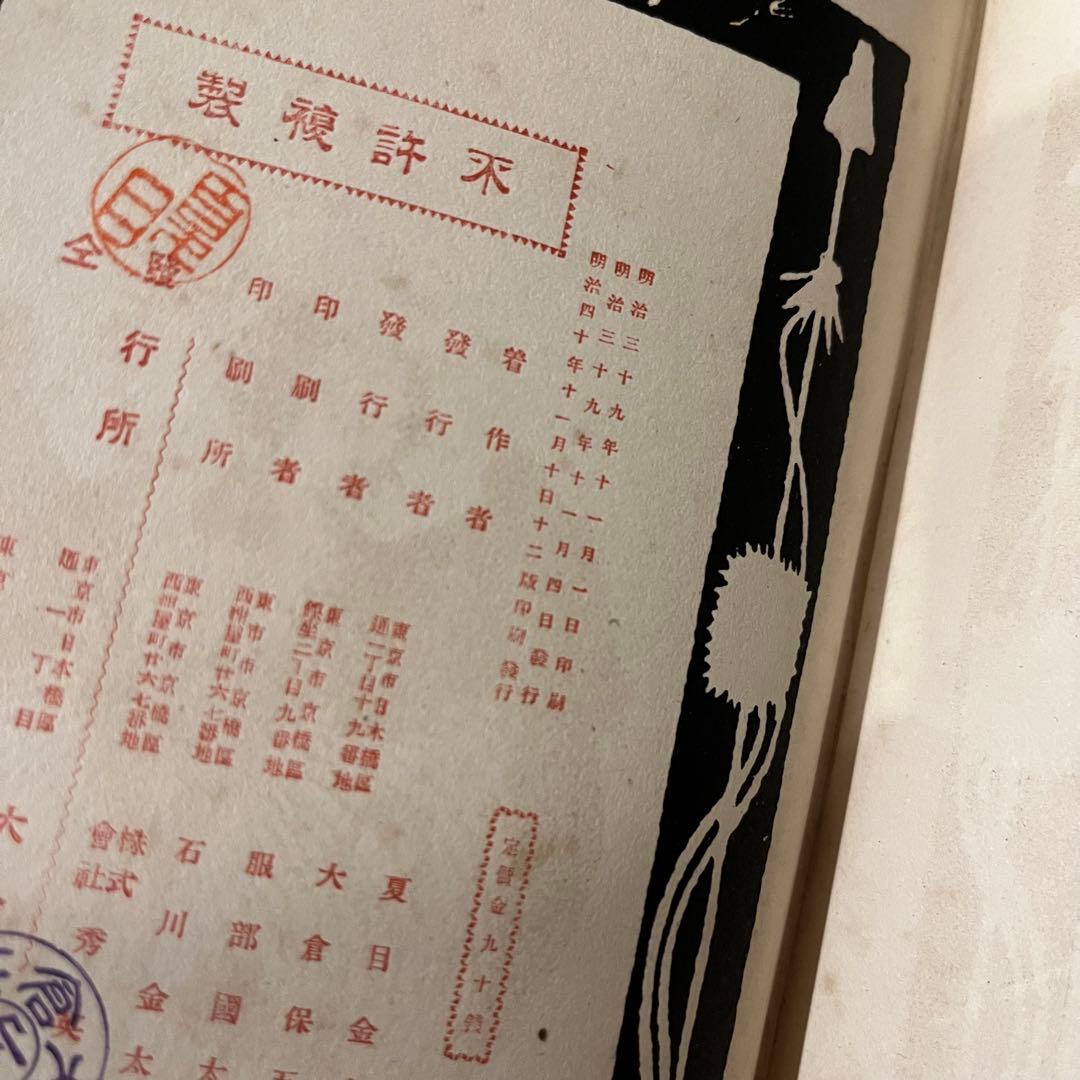 不許複製
明治三十九年十一月一日印刷
明治三十九年十一月四日發行
明治四十年十一月十日十二版印刷發行
定價金九十錢
著作者 夏目金
發行者 東京市日本橋區
通一丁目十九番地 大倉保五
發行者 東京市京橋區
銀座二丁目九番地 服部國太
印刷者 東京市京橋區
西紺屋町廿六七番地 石川金太
印刷所 東京市京橋區
西紺屋町廿六七番地 株式
會社秀英
發行所 東京市日本橋區
通一丁目 大
仝 東京
夏目